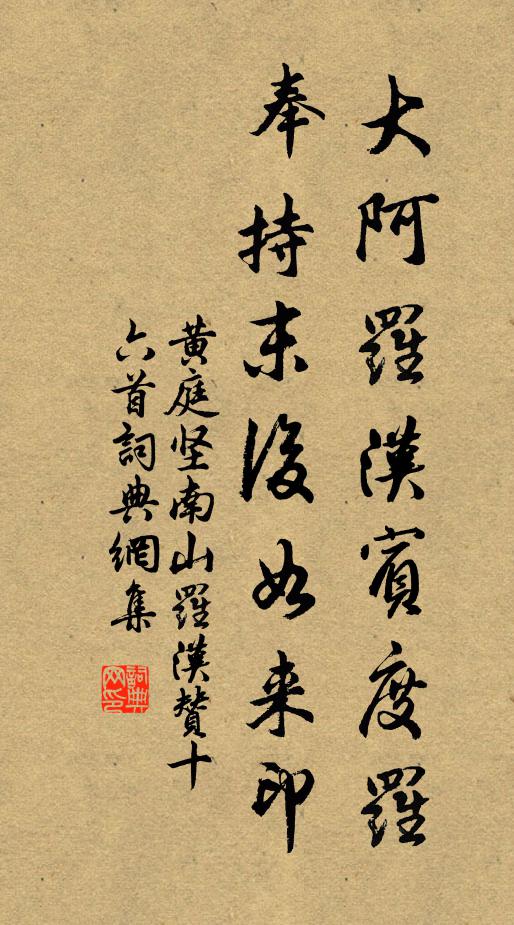 大阿羅漢賓度羅
奉持末後如来印
黄庭坚南山羅漢賛十
六首詞典網集
詞典网印